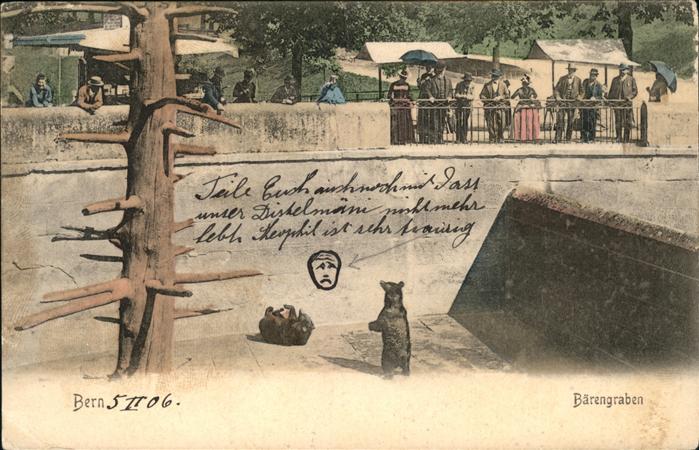 Teile Euch auch noch mit dass
unser Diskelmäni nicht mehr
lebt. Theophil ist sehr traurig
Bern 5 II 06.
Bärengraben